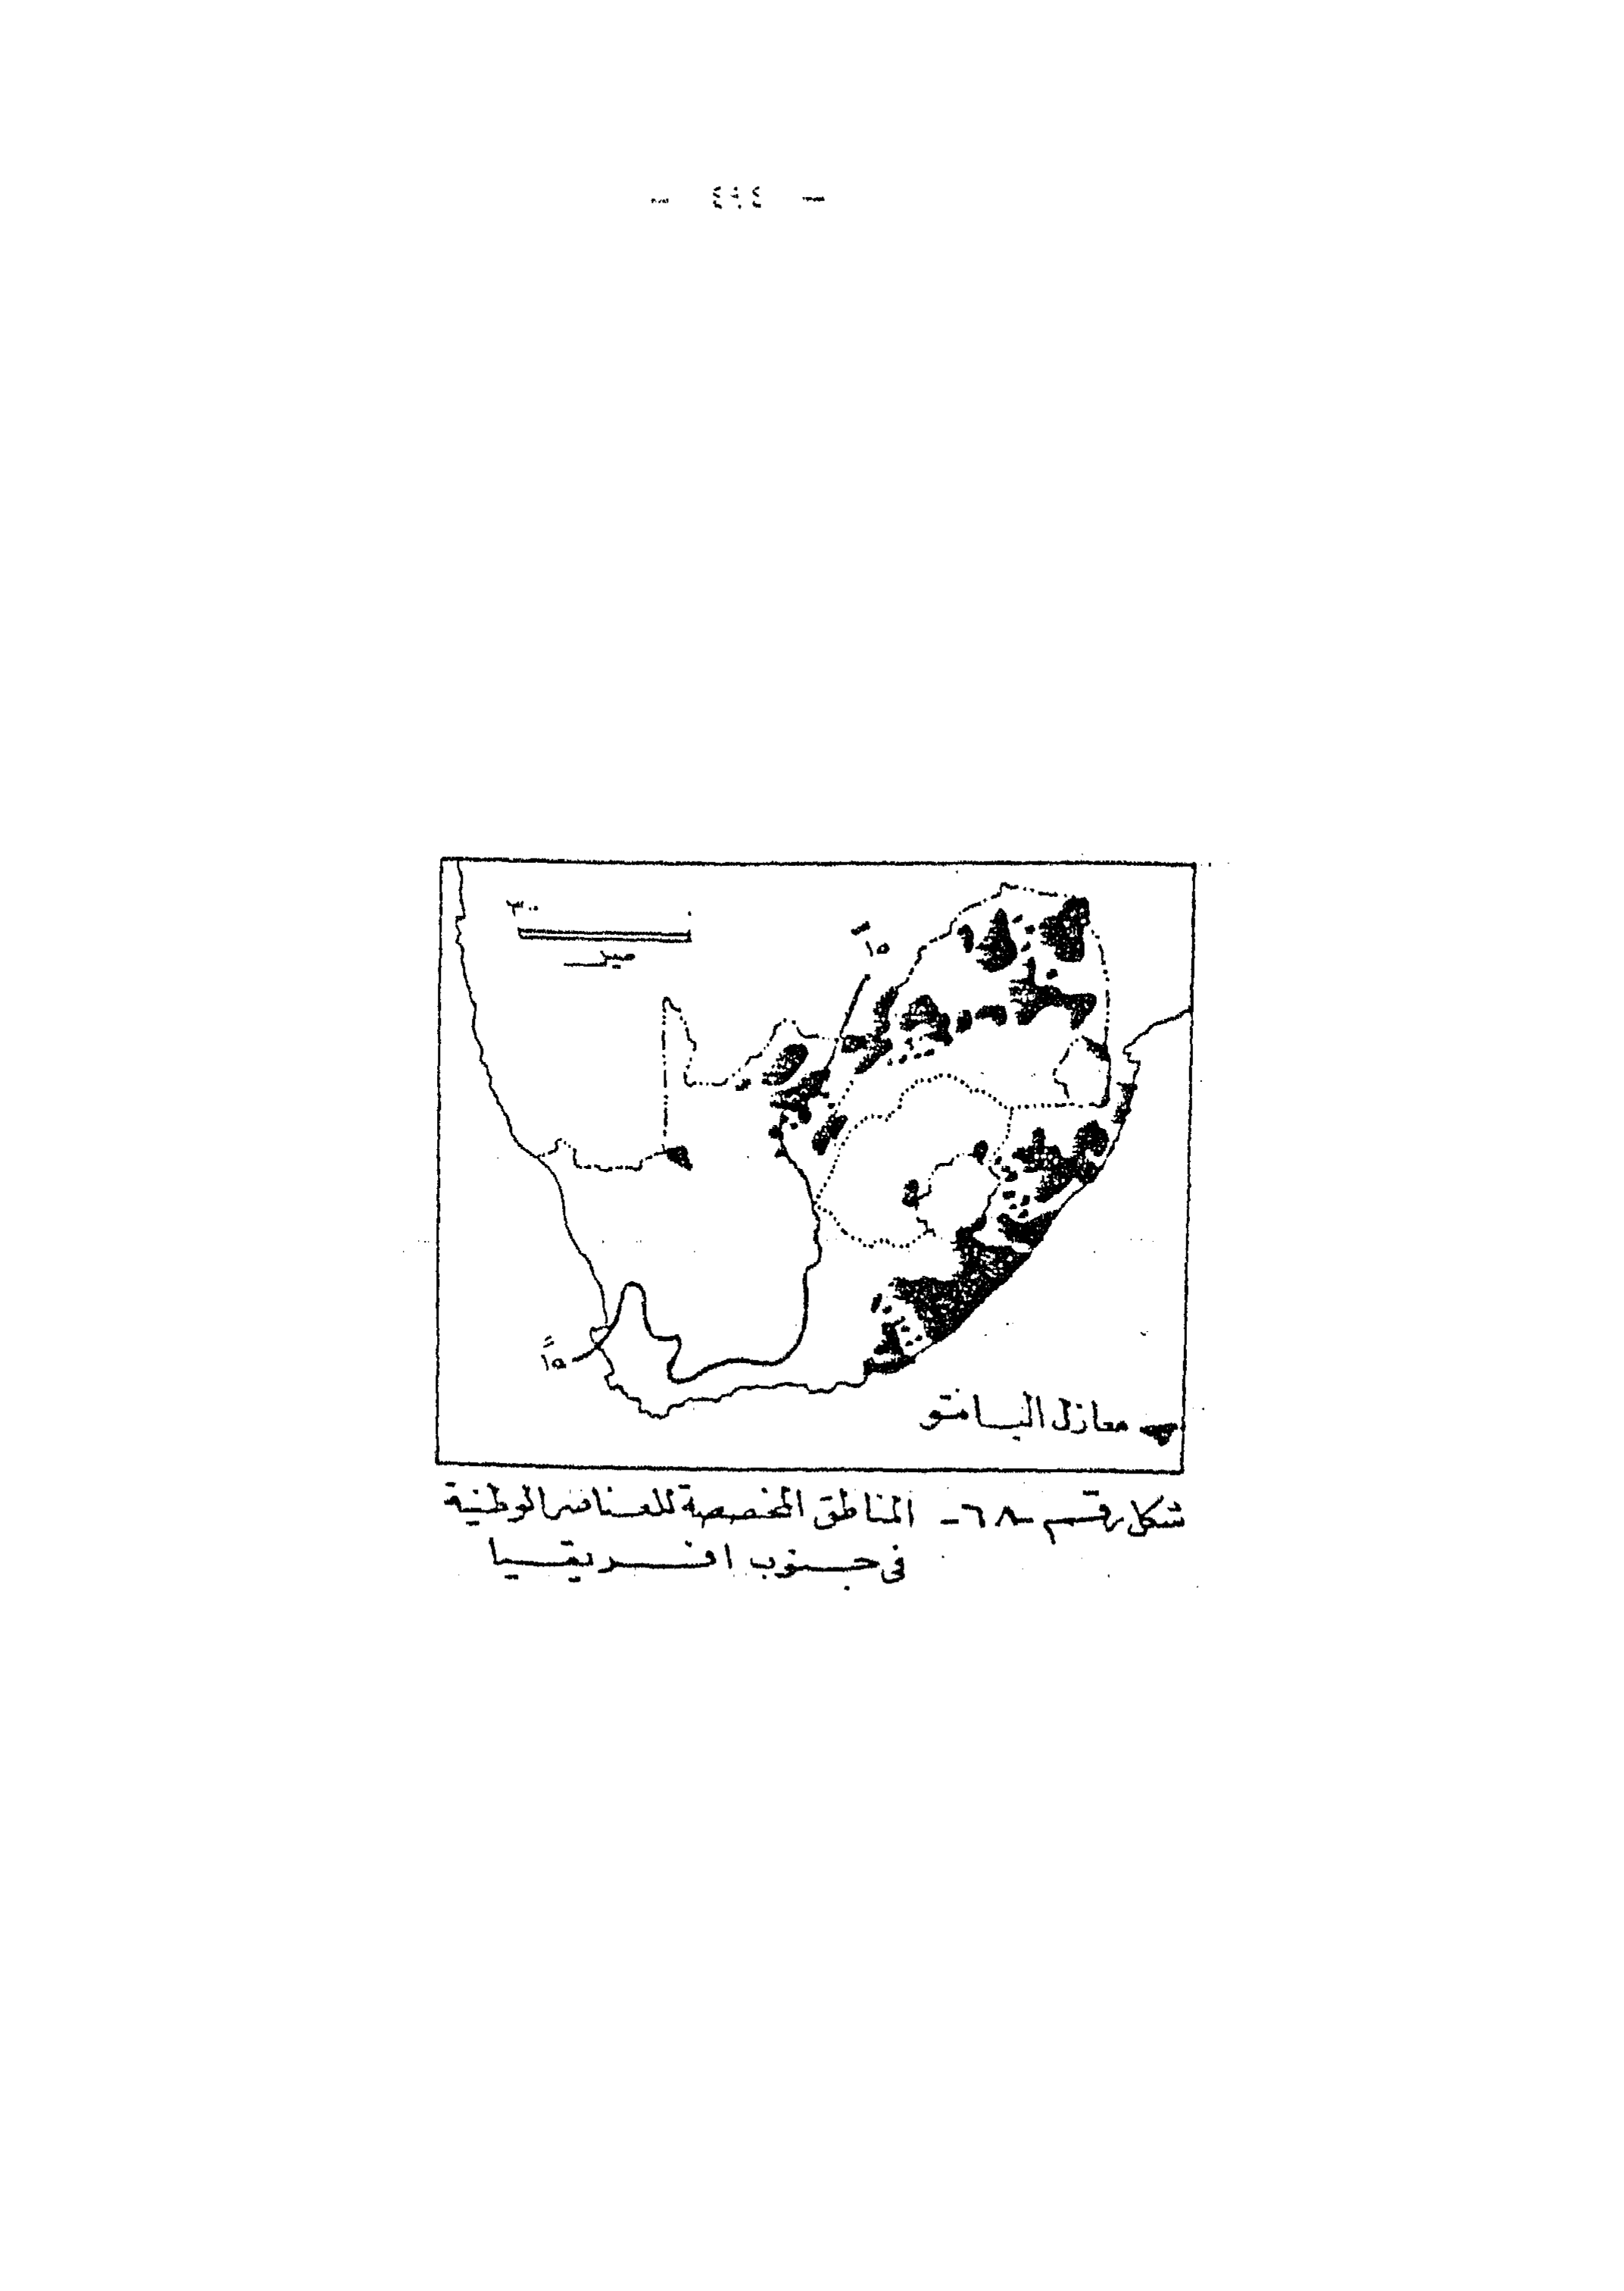 — ٤٩٤ —
٣٠٠
ميل
١٥
١٥
معازل البانتو
شكل رقم -٦٨- المناطق المخصصة للعناصر الوطنية
فى جنوب افريقيا